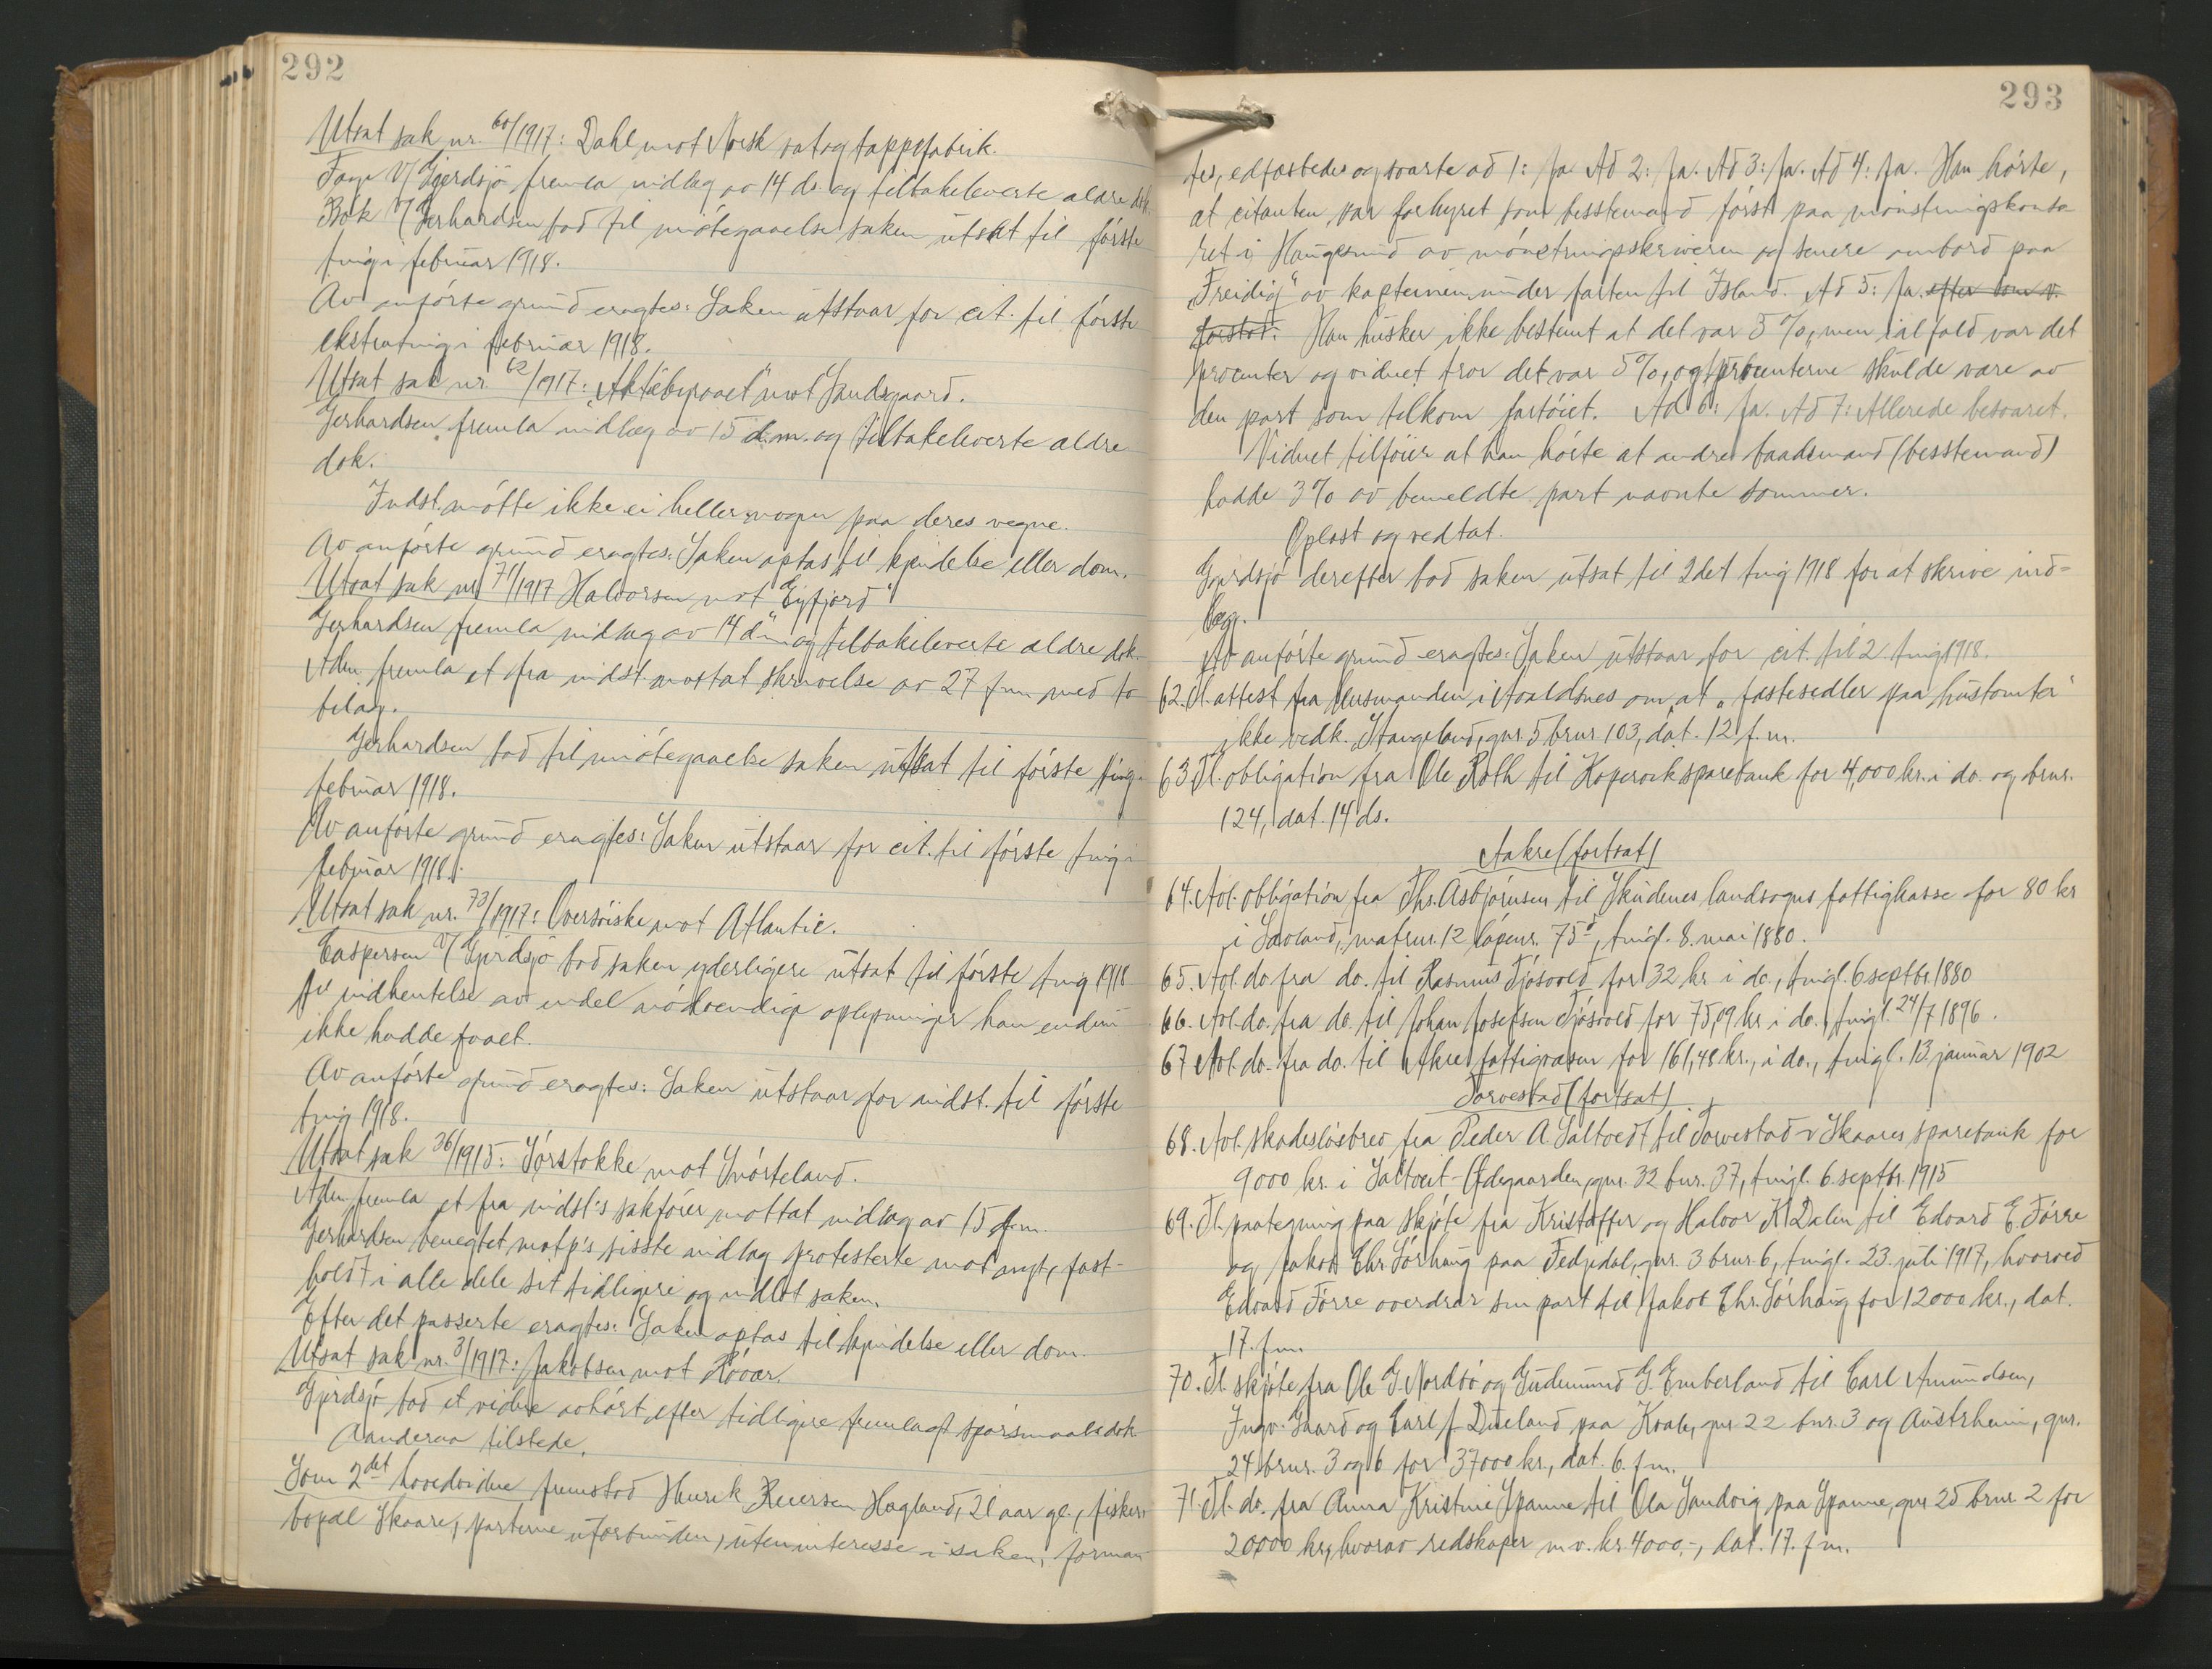 292
Utsat sak nr. 60/1917: Dahl mot Norsk vat og tappefabrik.
V/ Gjerdsjö fremla indlæg av 14 ds. og tilbakeleverte ældre dok.
Bok V/ Gerhardsen bad til imötegaaelse saken utsat til förste
ting i februar 1918.
Av anförte grund eragtes: Saken utstaar for cit. til förste
ekstrating i februar 1918.
Utsat sak nr. 62/1917: mot Sandsgaard.
Gerhardsen fremla indlæg av 15 d.m. og tilbakeleverte ældre
dok.
Indst. mötte ikke ei heller nogen paa deres vegne.
Av anförte grund eragtes: Saken optas til kjendelse eller dom.
Utsat sak nr. 71/1917 Halvorsen mot "Eyfjord"
Gerhardsen fremla indlæg av 14 d.m. og tilbakeleverte ældre dok.
Adm. fremla et fra indst. mottat skrivelse av 27 f.m. med to
bilag.
Gerhardsen bad til imötegaaelse saken utsat til förste ting i
februar 1918.
Av anförte grund eragtes: Saken utstaar for cit. til förste ting i
februar 1918.
Utsat sak nr. 73/1917: Oversöiske mot Atlantic.
Caspersen V/ Gjerdsjö bad saken yderligere utsat til förste ting 1918
til indhentelse av endel nödvendige oplysninger han endnu
ikke hadde faaet.
Av anförte grund eragtes: Saken utstaar for indst. til förste
ting 1918.
Utsat sak 36/1915: Sörstokke mot Snörteland.
Adm. fremla et fra indst's sakförer mottat indlæg av 15 d.m.
Gerhardsen benegtet motp's sisste indlæg protesterte mot nyt, fast-
holdt i alle dele sit tidligere og indlot saken.
Efter det passerte eragtes: Saken optas til kjendelse eller dom.
Utsat sak nr. 3/1917: Jakobsen mot Rövær.
Gjerdsjö bad et vidne avhört efter tidligere fremlagt spörsmaalsdok.
Aanderaa tilstede.
Som 2det hovedvidne fremstod Henrik Reiersen Hagland, 21 aar gl., fisker,
bopæl Skaare, parterne uforbunden, uten interesse i saken, forman-
293
tes, edfæstedes og svarte ad 1: Ja. Ad 2: Ja. Ad 3: Ja. Ad 4: Ja. Han hörte,
at citanten var forhyret som besstemand först paa mönstringskonto
ret i Haugesund av mönstringsskriveren og senere ombord paa
"Freidig" av kapteinen under farten til Island. Ad 5: Ja. efter som v.
forstod. Han husker ikke bestemt at det var 5 %, men ialfald var det
procenter og vidnet tror det var 5 %, og procenterne skulde være av
den part som tilkom fartöiet. Ad 6: Ja. Ad 7: Allerede besvaret.
Vidnet tilföier at han hörte at andre baadsmand (besstemand)
hadde 3 % av bemeldte part nævnte sommer.
Oplæst og vedtat.
Gjerdsjö derefter bad saken utsat til 2det ting 1918 for at skrive ind-
læg.
Av anförte grund eragtes: Saken utstaar for cit. til 2. ting 1918.
62. Tl. attest fra lensmanden i Avaldsnes om, at "fæstesedler paa hustomter"
ikke vedk. Stangeland, gnr. 5 brnr. 103, dat. 12 f.m.
63. Tl. obligation fra Ole Roth til Kopervik sparebank for 4,000 kr. i do. og brnr.
124, dat. 14 ds.
Aakre (fortsat)
64. Avl. obligation fra Ths. Asbjörnsen til Skudenes landsogns fattigkasse for 80 kr
i Sævland, matrnr. 12 löpenr. 75 d, tingl. 8. mai 1880.
65. Avl. do. fra do. til Rasmus Tjösvold for 32 kr. i do., tingl. 6 septbr. 1880
66. Avl. do. fra do. til Johan Josefsen Tjösvold for 75,09 kr. i do., tingl. 24/7 1896.
67 Avl. do. fra do. til Akre fattigvæsen for 161,48 kr., i do., tingl. 13 januar 1902
Torvestad (fortsat)
68. Avl. skadeslösbrev fra Peder A. Saltvedt til Torvestad & Skaares sparebank for
9000 kr. i Saltveit-Ödegaarden, gnr. 32 bnr. 37, tingl. 6. septbr. 1915
69. Tl. paategning paa skjöte fra Kristoffer og Halvor K. Dalen til Edvard E. Förre
og Jakob Chr. Sörhaug paa Fedjedal, gnr. 3 brnr 6, tingl. 23. juli 1917, hvorved
Edvard Förre overdrar sin part til Jakob Chr. Sörhaug for 12000 kr., dat.
17. f.m.
70. Tl. skjöte fra Ole G. Nordbö og Gudmund G. Emberland til Carl Amundsen,
Ingv. Gaard og Carl J. Dueland paa Kvale, gnr 22 bnr. 3 og Austrheim, gnr.
24 brnr. 3 og 6 for 37000 kr., dat. 6. f.m.
71. Tl. do. fra Anna Kristine Spanne til Ola Sandvig paa Spanne, gnr 25 brnr. 2 for
20000 kr, hvorav redskaper m.v. kr. 4000,-, dat. 17. f.m.